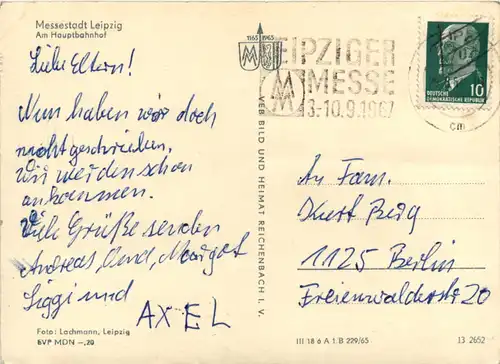 Messestadt Leipzig
Am Hauptbahnhof
Liebe Eltern!
Nun haben wir doch
nicht geschrieben.
Wir werden schon
ankommen.
Viele Grüße senden
Andreas, Omd, Margot
Siggi und
AXEL
Foto: Lachmann, Leipzig
BVP MDN –,20
VEB BILD UND HEIMAT REICHENBACH I. V.
1165 1965
LEIPZIGER
MESSE
3.-10.9.1967
10
DEUTSCHE
DEMOKRATISCHE REPUBLIK
cm
An Fam.
Kurt Berg
1125 Berlin
Freienwalderstr 20
III 18 6 A 1.B 229/65
13 2652